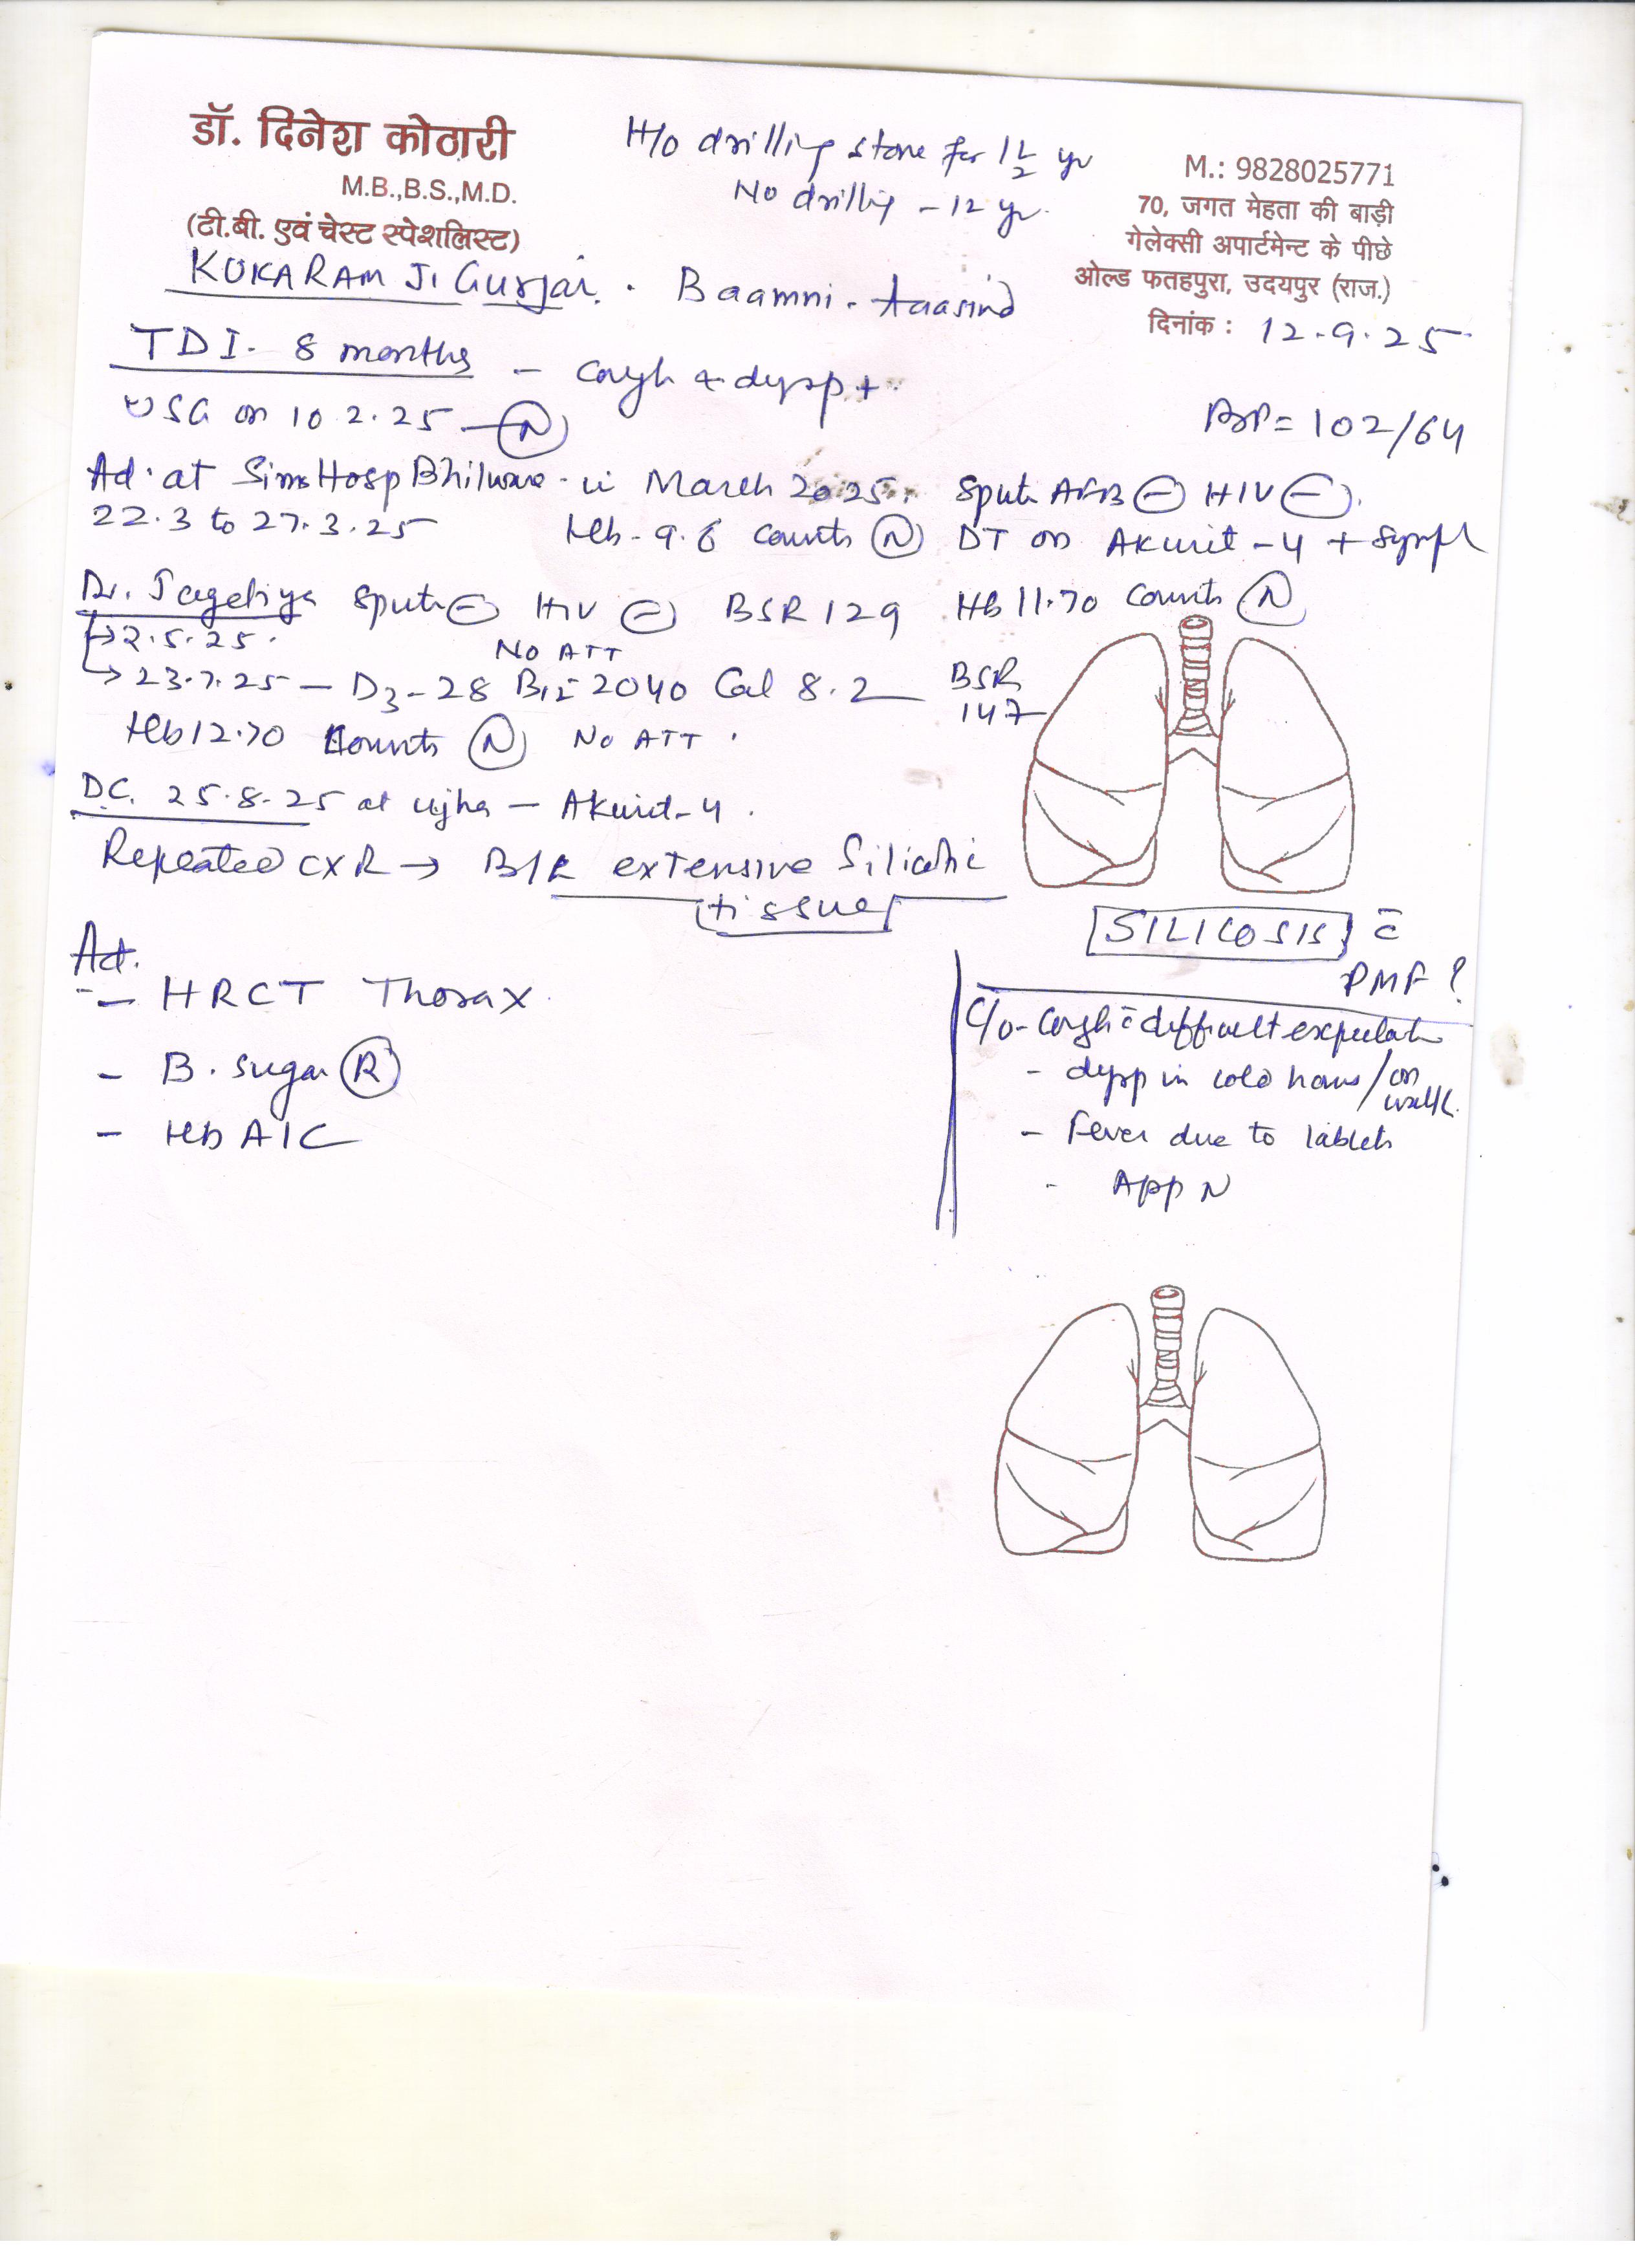 डॉ. दिनेश कोठारी
M.B.,B.S.,M.D.
(टी.बी. एवं चेस्ट स्पेशलिस्ट)
H/o drilling stone for 1 1/2 yr
No drilling - 12 yr.
M.: 9828025771
70, जगत मेहता की बाड़ी
गेलेक्सी अपार्टमेन्ट के पीछे
ओल्ड फतहपुरा, उदयपुर (राज.)
दिनांक : 12.9.25
KUKARAM JI Gurjar. Baamni - Aaasind
TDI - 8 months - cough & dysp +
USG on 10.2.25 - (N)
BP = 102/64
Ad. at Sims Hosp Bhilware - in March 2025. Sput AFB (-) HIV (-).
22.3 to 27.3.25 Hb - 9.6 counts (N) DT on Akurit-4 +
Dr. Sput (-) HIV (-) BSR 129 Hb 11.70 counts (N)
→ 2.5.25. No ATT
→ 23.7.25 - D3-28 B12 2040 Cal 8.2 BSR 147
Hb 12.70 Counts (N) No ATT.
D.C. 25.8.25 at ujha - Akurit-4.
Repeated CXR → B/L extensive Silicotic
tissue
SILICOSIS c̄
PMF ?
Ad.
- HRCT Thorax
- B. sugar (R)
- Hb A1C
C/o - Cough c̄ difficult
- dysp in cold hours / on walk.
- Fever due to tablets
- App N